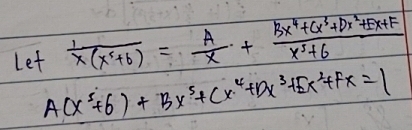 Let 1/x(x⁵+6) = A/x + Bx⁴+Cx³+Dx²+Ex+F/x⁵+6
A(x⁵+6) + Bx⁵+Cx⁴+Dx³+Ex²+Fx = 1